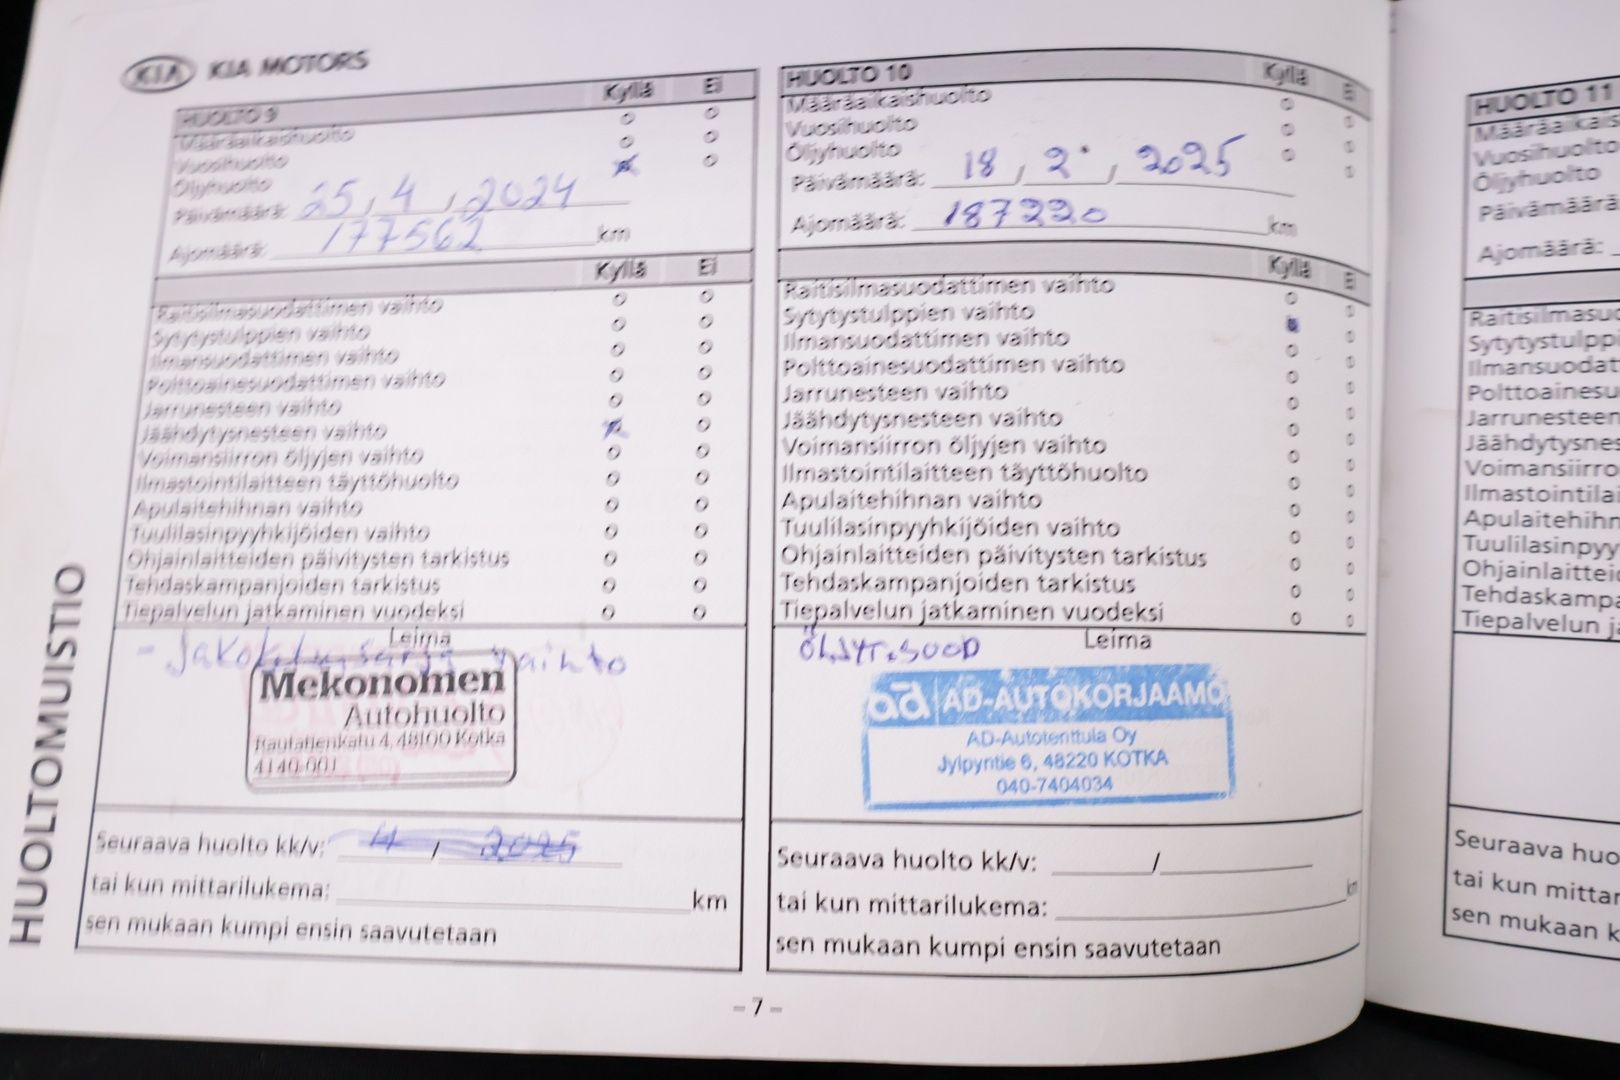 KIA KIA MOTORS
HUOLTOMUISTIO
HUOLTO 9 Kyllä Ei
Määräaikaishuolto
Vuosihuolto
Öljyhuolto
Päivämäärä: 25, 4, 2024
Ajomäärä: 177562 km
Kyllä Ei
Raitisilmasuodattimen vaihto
Sytytystulppien vaihto
Ilmansuodattimen vaihto
Polttoainesuodattimen vaihto
Jarrunesteen vaihto
Jäähdytysnesteen vaihto
Voimansiirron öljyjen vaihto
Ilmastointilaitteen täyttöhuolto
Apulaitehihnan vaihto
Tuulilasinpyyhkijöiden vaihto
Ohjainlaitteiden päivitysten tarkistus
Tehdaskampanjoiden tarkistus
Tiepalvelun jatkaminen vuodeksi
Leima
- Jakoketjusarja vaihto
Mekonomen
Autohuolto
Rautatienkatu 4, 48100 Kotka
4140-001
Seuraava huolto kk/v: 4 / 2025
tai kun mittarilukema: km
sen mukaan kumpi ensin saavutetaan
HUOLTO 10 Kyllä Ei
Määräaikaishuolto
Vuosihuolto
Öljyhuolto
Päivämäärä: 18, 2, 2025
Ajomäärä: 187220 km
Kyllä Ei
Raitisilmasuodattimen vaihto
Sytytystulppien vaihto
Ilmansuodattimen vaihto
Polttoainesuodattimen vaihto
Jarrunesteen vaihto
Jäähdytysnesteen vaihto
Voimansiirron öljyjen vaihto
Ilmastointilaitteen täyttöhuolto
Apulaitehihnan vaihto
Tuulilasinpyyhkijöiden vaihto
Ohjainlaitteiden päivitysten tarkistus
Tehdaskampanjoiden tarkistus
Tiepalvelun jatkaminen vuodeksi
Leima
ad AD-AUTOKORJAAMO
AD-Autotenttula Oy
Jylpyntie 6, 48220 KOTKA
040-7404034
Seuraava huolto kk/v: /
tai kun mittarilukema: km
sen mukaan kumpi ensin saavutetaan
- 7 -
HUOLTO 11
Määräaikais
Vuosihuolto
Öljyhuolto
Päivämäärä
Ajomäärä:
Raitisilmasuo
Sytytystulpp
Ilmansuodat
Polttoainesu
Jarrunesteen
Jäähdytysnes
Voimansiirro
Ilmastointilai
Apulaitehihn
Tuulilasinpyy
Ohjainlaitteid
Tehdaskampa
Tiepalvelun ja
Seuraava huo
tai kun mittar
sen mukaan k